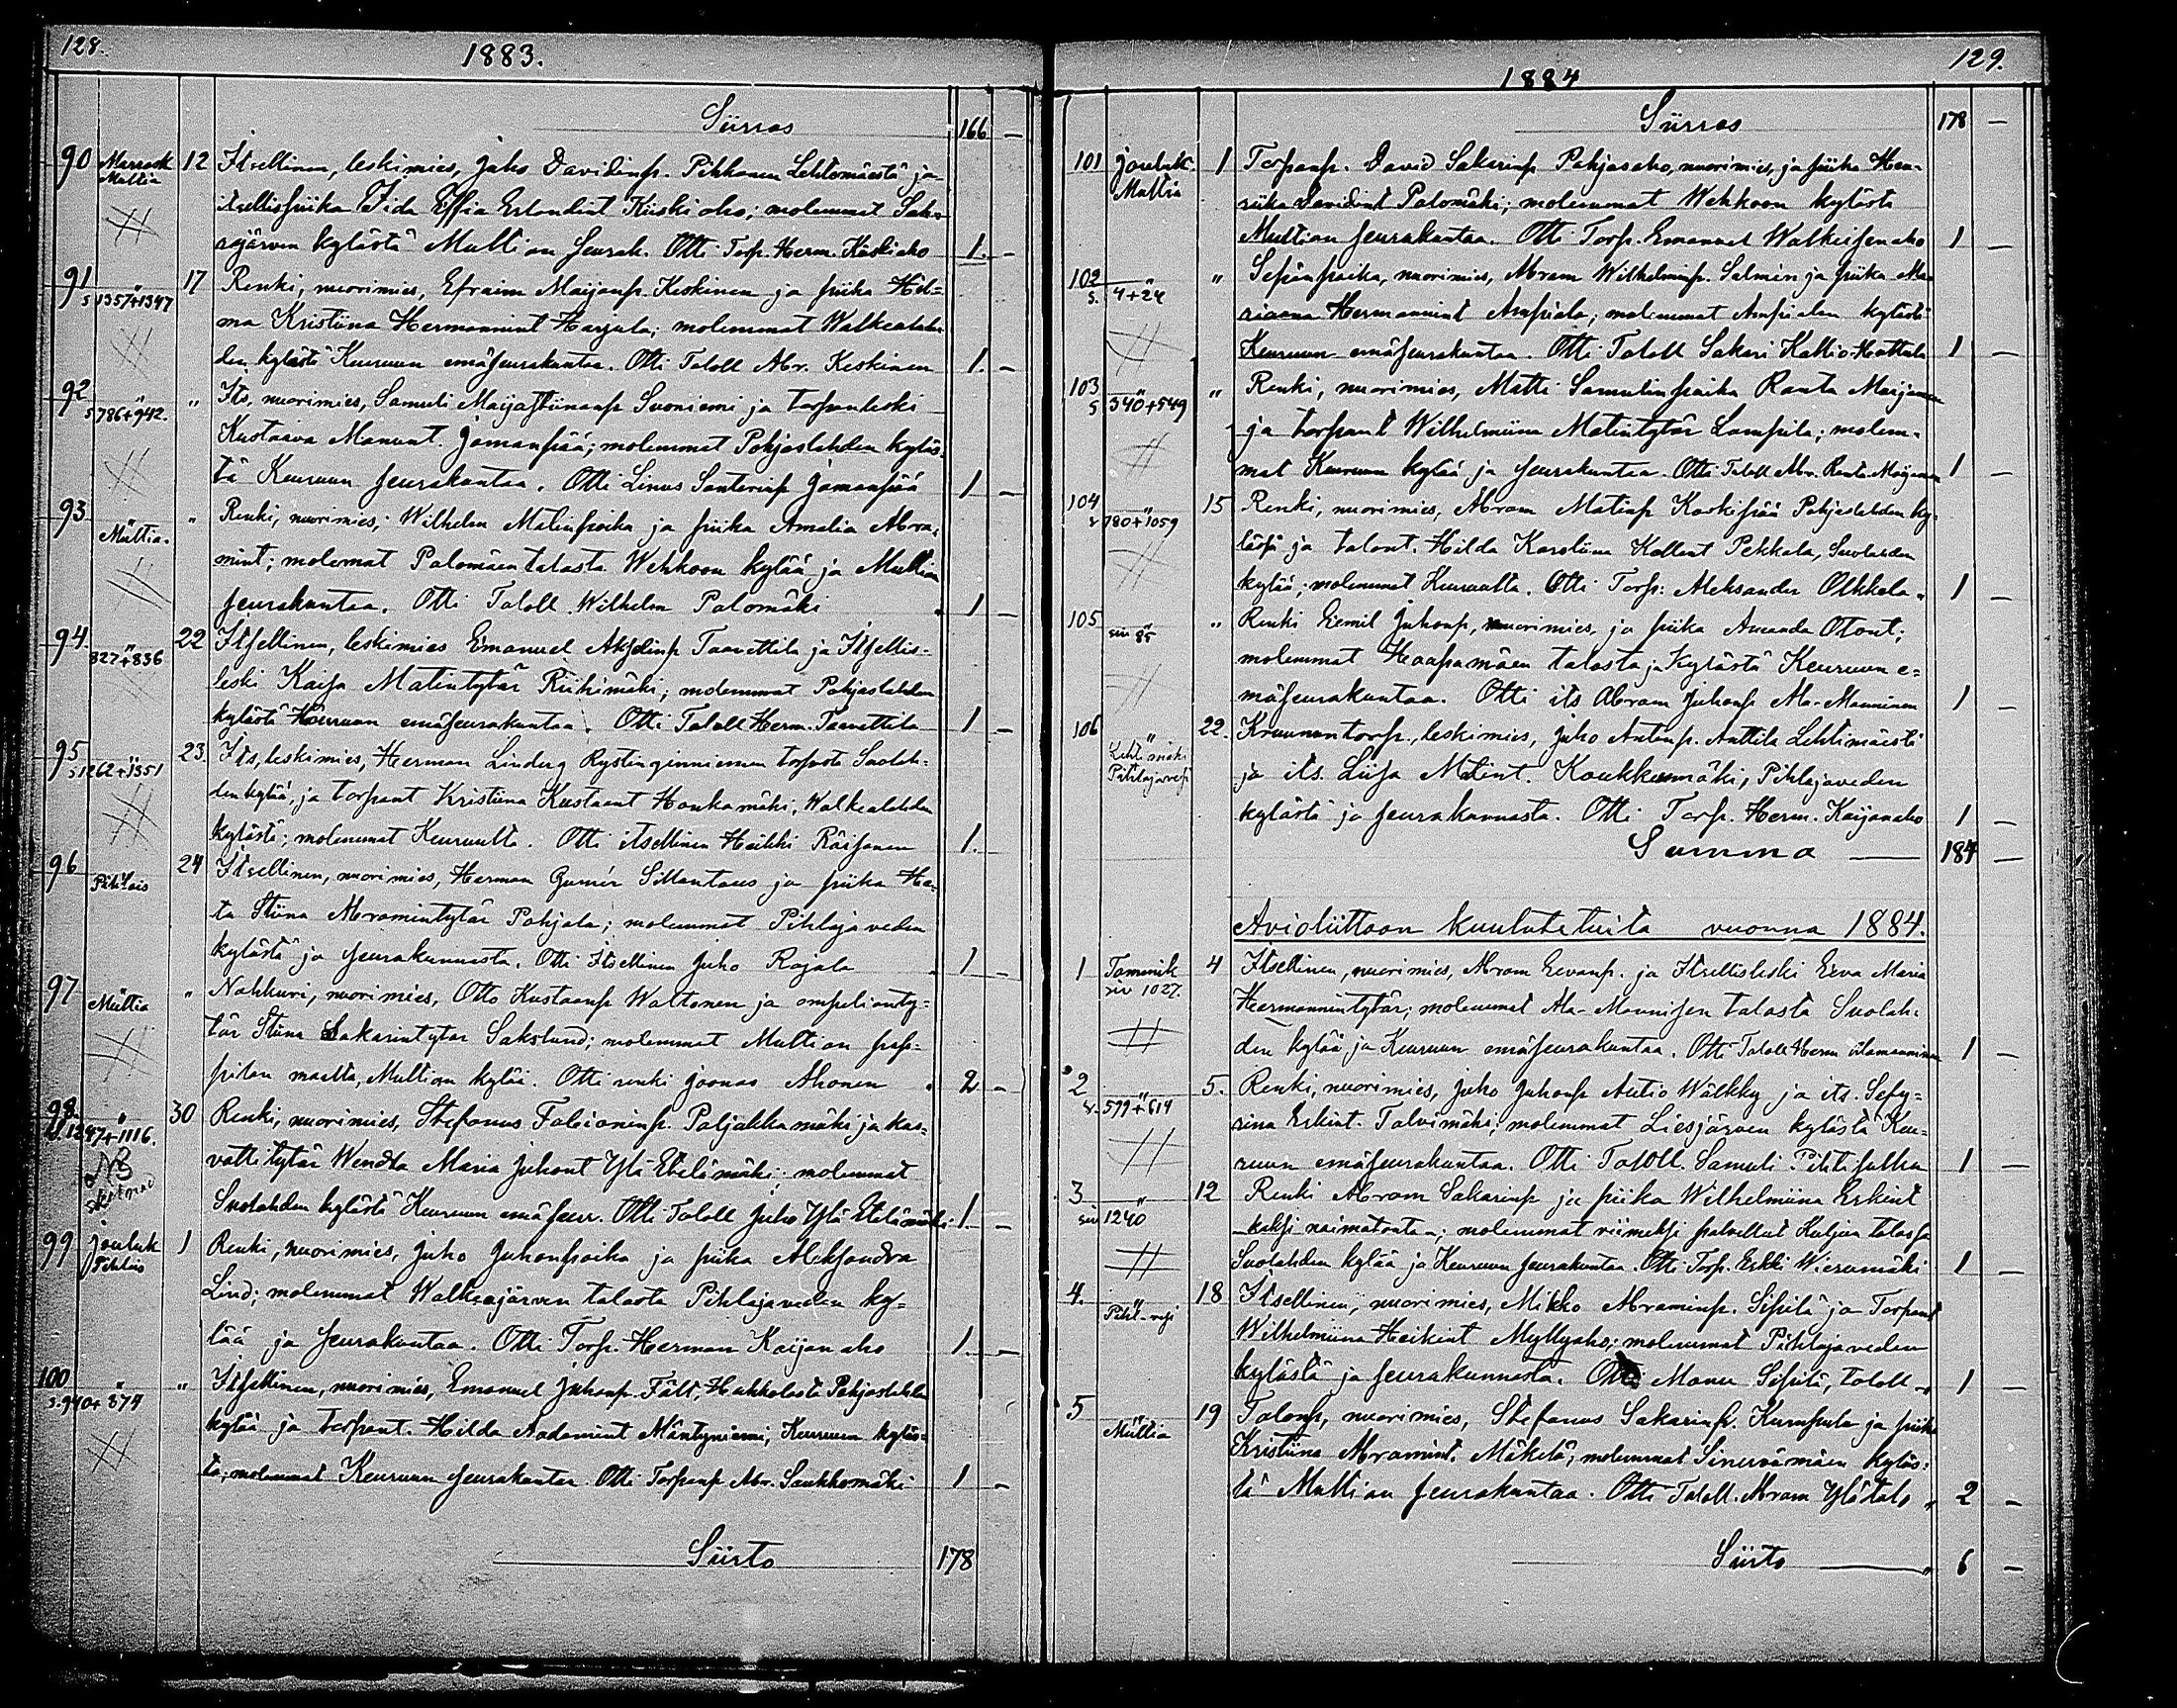 128.
1883.
Siirros 166 —
90 Marrask. Multia 12 Itsellinen, leskimies, Juho Davidinp. Pihkanen Lehtomäestä ja
itsellispiika Fida Effia Erlandint Kiiskiaho; molemmat Saha-
rajärven kylästä Multian seurak. Otti Torp. Herm. Kiiskiaho 1. —
91 s 1357+1347 17 Renki, nuorimies, Efraim Maijanp. Keskinen ja piika Hel-
ma Kristiina Hermannint Harjula; molemmat Walkealah-
den kylästä Keuruun emäseurakuntaa. Otti Taloll Abr. Keskinen 1. —
92 s 786+942. " Its, nuorimies, Samuli Maijastiinanp Suoniemi ja torpanleski
Kustaava Manunt. Jamanpää; molemmat Pohjaslahden kyläs-
tä Keuruun seurakuntaa. Otti Linus Santerinp Jamanpää 1 —
93 " Multia. " Renki, nuorimies, Wilhelm Matinpoika ja piika Amalia Abra-
mint; molemat Palomäen talosta Wehkoon kylää ja Multian
seurakuntaa. Otti Taloll Wilhelm Palomäki 1 —
94. " 827+836 22 Itsellinen, leskimies Emanuel Akselinp Taavettila ja Itsellis-
leski Kaisa Matintytär Riihimäki; molemmat Pohjaslahden
kylästä Keuruun emäseurakuntaa. Otti Taloll Herm. Taavettila 1 —
95 s 1262+1351 23. Its, leskimies, Herman Linderg Rystinginniemen torpasta Suolah-
den kylää, ja torpant Kristiina Kustaant Honkamäki, Walkealahden
kylästä; molemmat Keuruulta. Otti itsellinen Heikki Räisänen 1. —
96 " Pihlais 24 Itsellinen, nuorimies, Herman Gumér Sillantaus ja piika He-
ta Stiina Abramintytär Pohjala; molemmat Pihlajaveden
kylästä ja seurakunnasta. Otti Itsellinen Juho Rajala 1 —
97 " Multia " Nahkuri, nuorimies, Otto Kustaanp Waltonen ja ompelianty-
tär Stiina Sakarintytar Sakslund; molemmat Multian pap-
pilan maalta, Multian kylää. Otti renki Joonas Ahonen 2 —
98 " s. 1247+1116. 30 Renki, nuorimies, Stefanus Fabianinp. Paljakkamäki ja kas-
NB
vattitytär Wendla Maria Juhont Ylä Etelämäki; molemmat
Suolahden kylästä Keuruun emäseur. Otti Taloll Juho Ylä Etelämäki 1. —
99 Jouluk Pihlais 1 Renki, nuorimies, Juho Juhonpoika ja piika Aleksandra
Lind; molemmat Walkeajärven talosta Pihlajaveden ky-
lää ja seurakuntaa. Otti Torp. Herman Kaijanaho 1. —
100 " s. 940+874 " Itsellinen, nuorimies, Emanuel Juhonp. Fält, Hakkolasta Pohjaslahden
kylää ja torpant. Hilda Aadamint Mäntyniemi, Keuruun kyläs-
tä; molemmat Keuruun seurakuntaa. Otti Torpanp Abr. Saukkomäki 1 —
Siirto 178
129.
1884
Siirros 178 —
101 Jouluk. Multia 1 Torpanp. David Sakarinp Pohjasaho, nuorimies, ja piika Hen-
riika Davidint Palomäki; molemmat Wehkoon kylästä
Multian seurakuntaa. Otti Torp. Emanuel Walkeisenaho 1 —
102 s. " 4+24 " Sepänpoika, nuorimies, Abram Wilhelminp. Salmén ja piika Ma-
riaana Hermannint Ampiala; molemmat Ampialan kylästä
Keuruun emäseurakuntaa. Otti Taloll Sakari Kallio-Hattula 1 —
103 s " 340+549 " Renki, nuorimies, Matti Samulinpoika Ranta Maijanen
ja torpant Wilhelmiina Matintytär Lampila; molem-
mat Keuruun kylää ja seurakuntaa. Otti Taloll Abr. Ranta-Maijanen 1 —
104 s " 780+1059 15 Renki, nuorimies, Abram Matinp Koskipää Pohjaslahden ky-
lästä ja talont. Hilda Karoliina Kallent Pekkala, Suolahden
kylää; molemmat Keuruulta. Otti Torp: Aleksander Olkkola " 1 —
105 " siv 85 " Renki Eemil Juhonp, nuorimies, ja piika Amanda Otont;
molemmat Haapamäen talosta ja kylästä Keuruun e-
mäseurakuntaa. Otti its Abram Juhonp Ala-Manninen 1 —
106 " Lehtimäki Pihlajavesi 22. Kruununtorp., leskimies, Juho Antinp. Anttila Lehtimäestä
ja its. Liisa Matint. Koukkumäki, Pihlajaveden
kylästä ja seurakunnasta. Otti Torp. Herm. Kaijanaho 1 —
Summa — 184 —
Avioliittoon kuulutetuita vuonna 1884.
1 Tammik siv 1027. 4 Itsellinen, nuorimies, Abram Eevanp. ja Itsellisleski Eeva Maria
Heermannintytär; molemmat Ala-Mannisen talosta Suolah-
den kylää ja Keuruun emäseurakuntaa. Otti Taloll Herm Alamanninen 1 —
2 s. " 599+614 5. Renki, nuorimies, Juho Juhonp Autio Wälkky ja its. Sefy-
rina Erkint. Talvimäki; molemmat Liesjärven kylästä Keu-
ruun emäseurakuntaa. Otti Taloll. Samuli Pihtisulku 1 —
3 " siv 1240 12 Renki Abram Sakarinp ja piika Wilhelmiina Erkint
kaksi naimatonta; molemmat viimeksi palvellut Huljan talossa
Suolahden kylää ja Keuruun seurakuntaa. Otti Torp. Erkki Wierumäki 1 —
4. " Pihl-vesi 18 Itsellinen, nuorimies, Mikko Abraminp. Sipilä ja Torpant
Wilhelmiina Heikint Myllyaho; molemmat Pihlajaveden
kylästä ja seurakunnasta. Otti Manu Sipilä, taloll 1 —
5 " Multia 19 Talonp, nuorimies, Stefanus Sakarinp. Kumpula ja piika
Kristiina Abramint. Mäkelä; molemmat Sinervämäen kyläs-
tä Multian seurakuntaa. Otti Taloll. Abram Ylätalo " 2 —
Siirto " 6 —